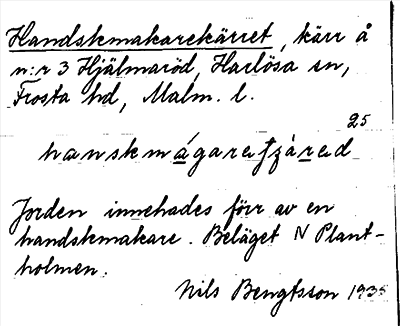 Handskmakarekärret, kärr å
n:r 3 Hjälmaröd, Harlösa sn,
Frosta hd, Malm. l.
25
Jorden innehades förr av en
handskmakare. Beläget N Plant-
holmen.
Nils Bengtsson 1935